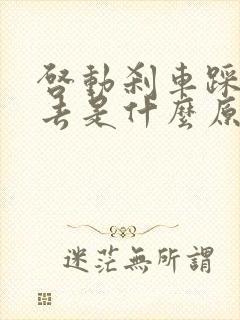 啓動刹車踩
去是什麼原
迷茫無所謂